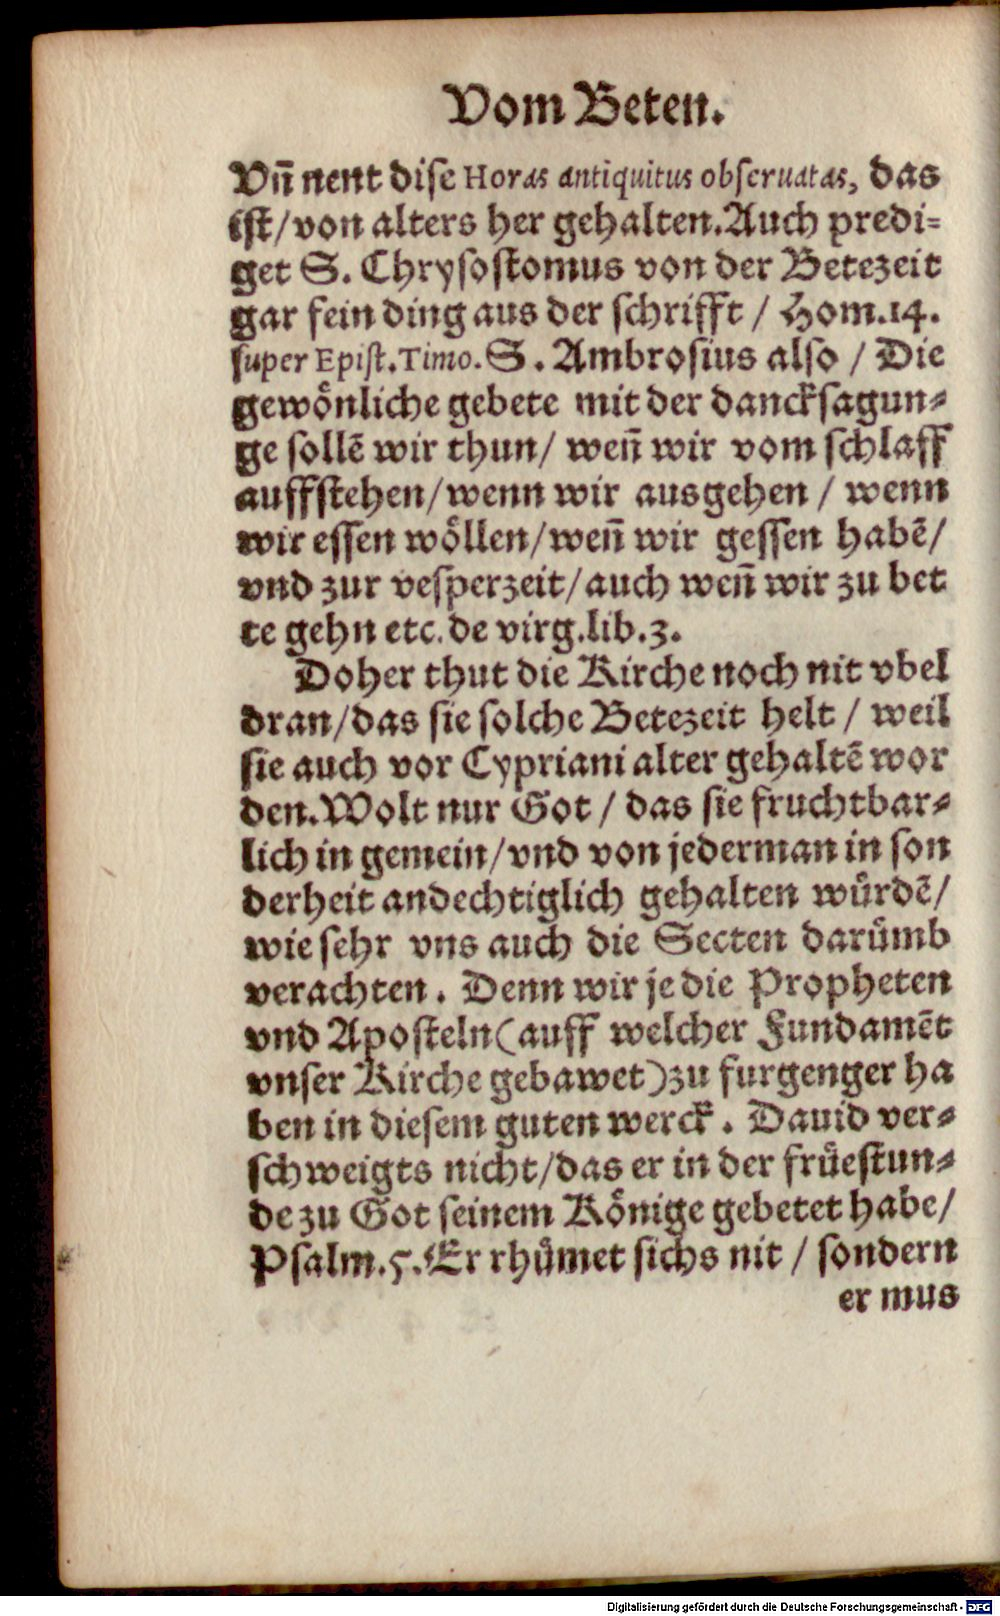 Vom Beten.
Vñ nent dise Horas antiquitus obseruatas, das
ist/von alters her gehalten.Auch predi-
get S. Chrysostomus von der Betezeit
gar fein ding aus der schrifft / Hom.14.
super Epist.Timo.S. Ambrosius also / Die
gewönliche gebete mit der dancksagun-
ge sollē wir thun/ weñ wir vom schlaff
auffstehen/wenn wir ausgehen / wenn
wir essen wöllen/weñ wir gessen habē/
vnd zur vesperzeit/auch weñ wir zu bet
te gehn etc.de virg.lib.3.
Doher thut die Kirche noch nit vbel
dran/das sie solche Betezeit helt / weil
sie auch vor Cypriani alter gehaltē wor
den.Wolt nur Got / das sie fruchtbar-
lich in gemein/vnd von jederman in son
derheit andechtiglich gehalten würdē/
wie sehr vns auch die Secten darümb
verachten. Denn wir je die Propheten
vnd Aposteln(auff welcher Fundamēt
vnser Kirche gebawet)zu furgenger ha
ben in diesem guten werck. Dauid ver-
schweigts nicht/das er in der früestun-
de zu Got seinem Könige gebetet habe/
Psalm.5.Er rhümet sichs nit / sondern
er mus
Digitalisierung gefördert durch die Deutsche Forschungsgemeinschaft - DFG